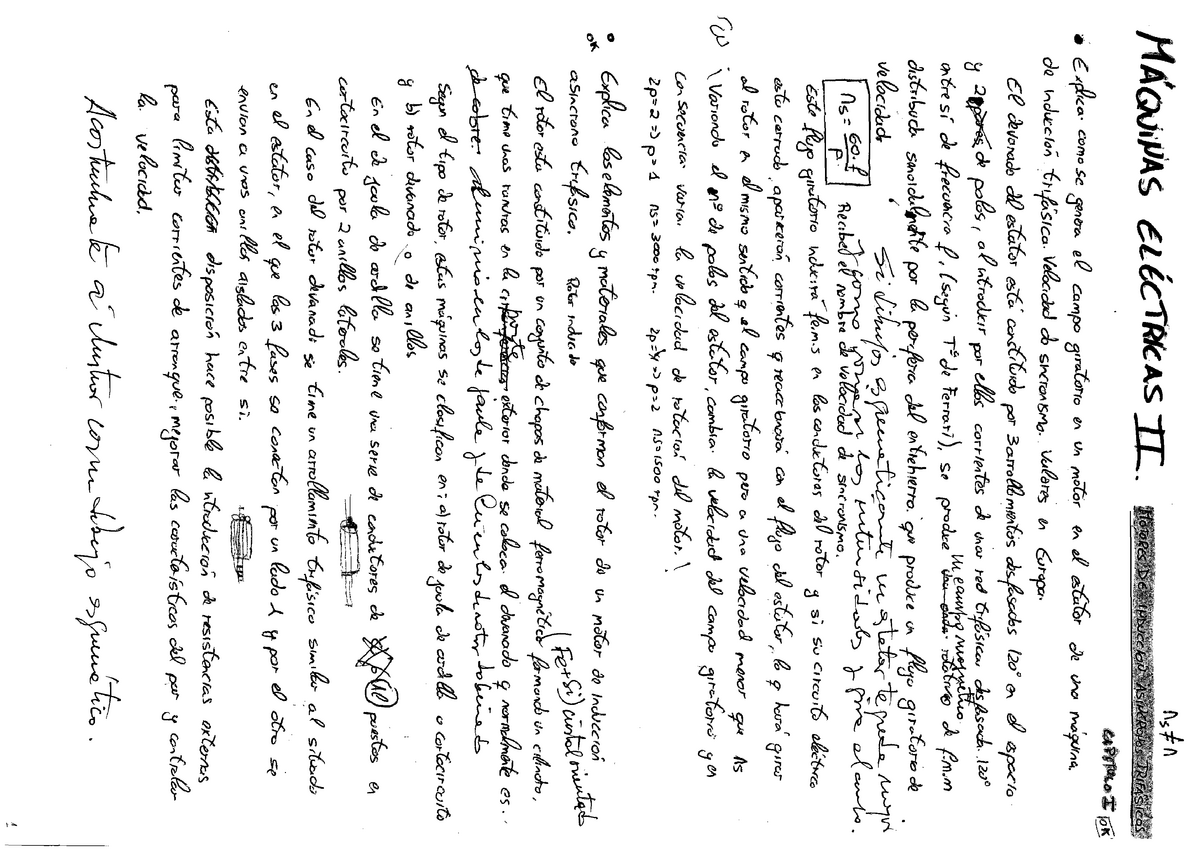 ns ≠ n
CAPITULO I OK
MÁQUINAS ELÉCTRICAS II.
MOTORES DE INDUCCION ASINCRONOS TRIFASICOS
• Explica como se genera el campo giratorio en un motor en el estator de una máquina
de inducción trifásica. Velocidad de sincronismo. Valores en Europa.
El devanado del estator está constituido por 3 arrollamientos desfasados 120° en el espacio
y 2p de polos, al introducir por ellos corrientes de una red trifásica desfasada 120°
entre si de frecuencia f, (según Tª de Ferraris), se produce un campo magnético rotativo de f.m.m
distribuida senoidalmente por la periferia del entrehierro, que produce un flujo giratorio de
velocidad
Si dibujas esquemáticamente un estator te queda muy
y como ponen las intensidades y gira el
ns = 60.f / p
Recibe el nombre de velocidad de sincronismo.
Este flujo giratorio inducira fe.m.s en los conductores del rotor y si su circuito eléctrico
esta cerrado, aparecerán corrientes q reaccionará con el flujo del estator, lo q hará girar
al rotor en el mismo sentido q el campo giratorio pero a una velocidad menor que ns
¡Variando el nº de polos del estator, cambia la velocidad del campo giratorio y en
consecuencia varian la velocidad de rotación del motor.!
2p=2 => p=1 ns=3000 rpm. 2p=4 => p=2 ns=1500 rpm.
• OK
Explica los elementos y materiales que conforman el rotor de un motor de inducción
asíncrono trifásico. Rotor inducido
(Fe+Si) cristal orientado
El rotor esta constituido por un conjunto de chapas de material ferromagnético formando un cilindro,
que tiene unas ranuras en la parte exterior donde se coloca el devanado q normalmente es..
de cobre. Aluminio en los de jaula y de Cu en los de rotor bobinado
Segun el tipo de rotor, estas máquinas se clasifican en: a) rotor de jaula de ardilla o cortocircuito
y b) rotor devanado o de anillos
En el de jaula de ardilla se tiene una serie de conductores de Al puestos en
cortocircuito por 2 anillos laterales.
En el caso del rotor devanado se tiene un arrollamiento trifásico similar al situado
en el estator, en el que las 3 fases se conectan por un lado λ y por el otro se
envian a unos anillos aislados entre si.
Esta disposición hace posible la introducción de resistencias externas
para limitar corrientes de arranque, mejorar las características del par y controlar
la velocidad.
Acostumbrate a ilustrar con un dibujo esquemático.